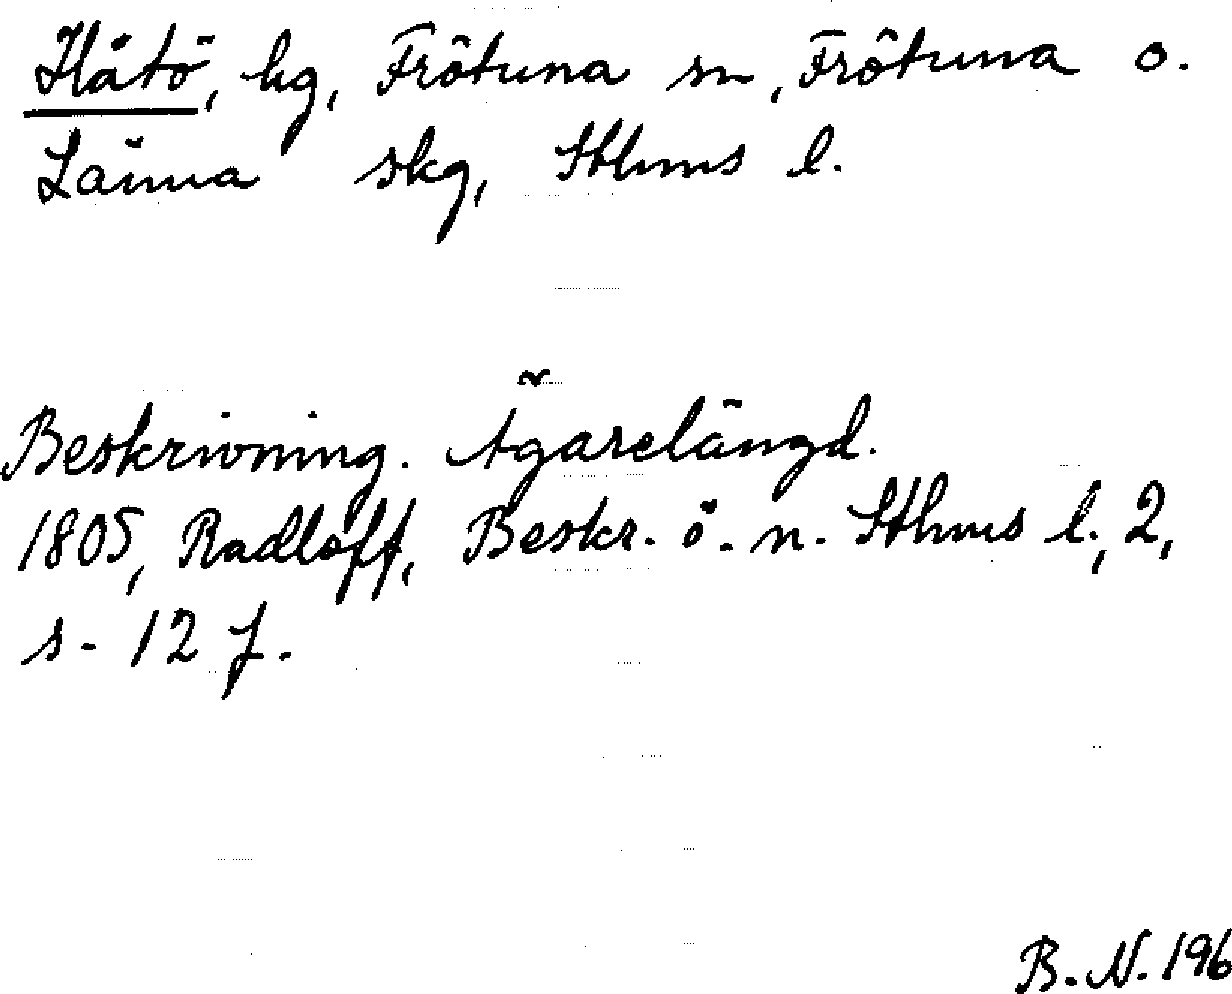 Håtö, hg, Frötuna sn, Frötuna o.
Länna skg, Sthms l.
Beskrivning. Ägarelängd.
1805, Radloff, Beskr. ö. n. Sthms l., 2,
s. 12 f.
B. N. 196